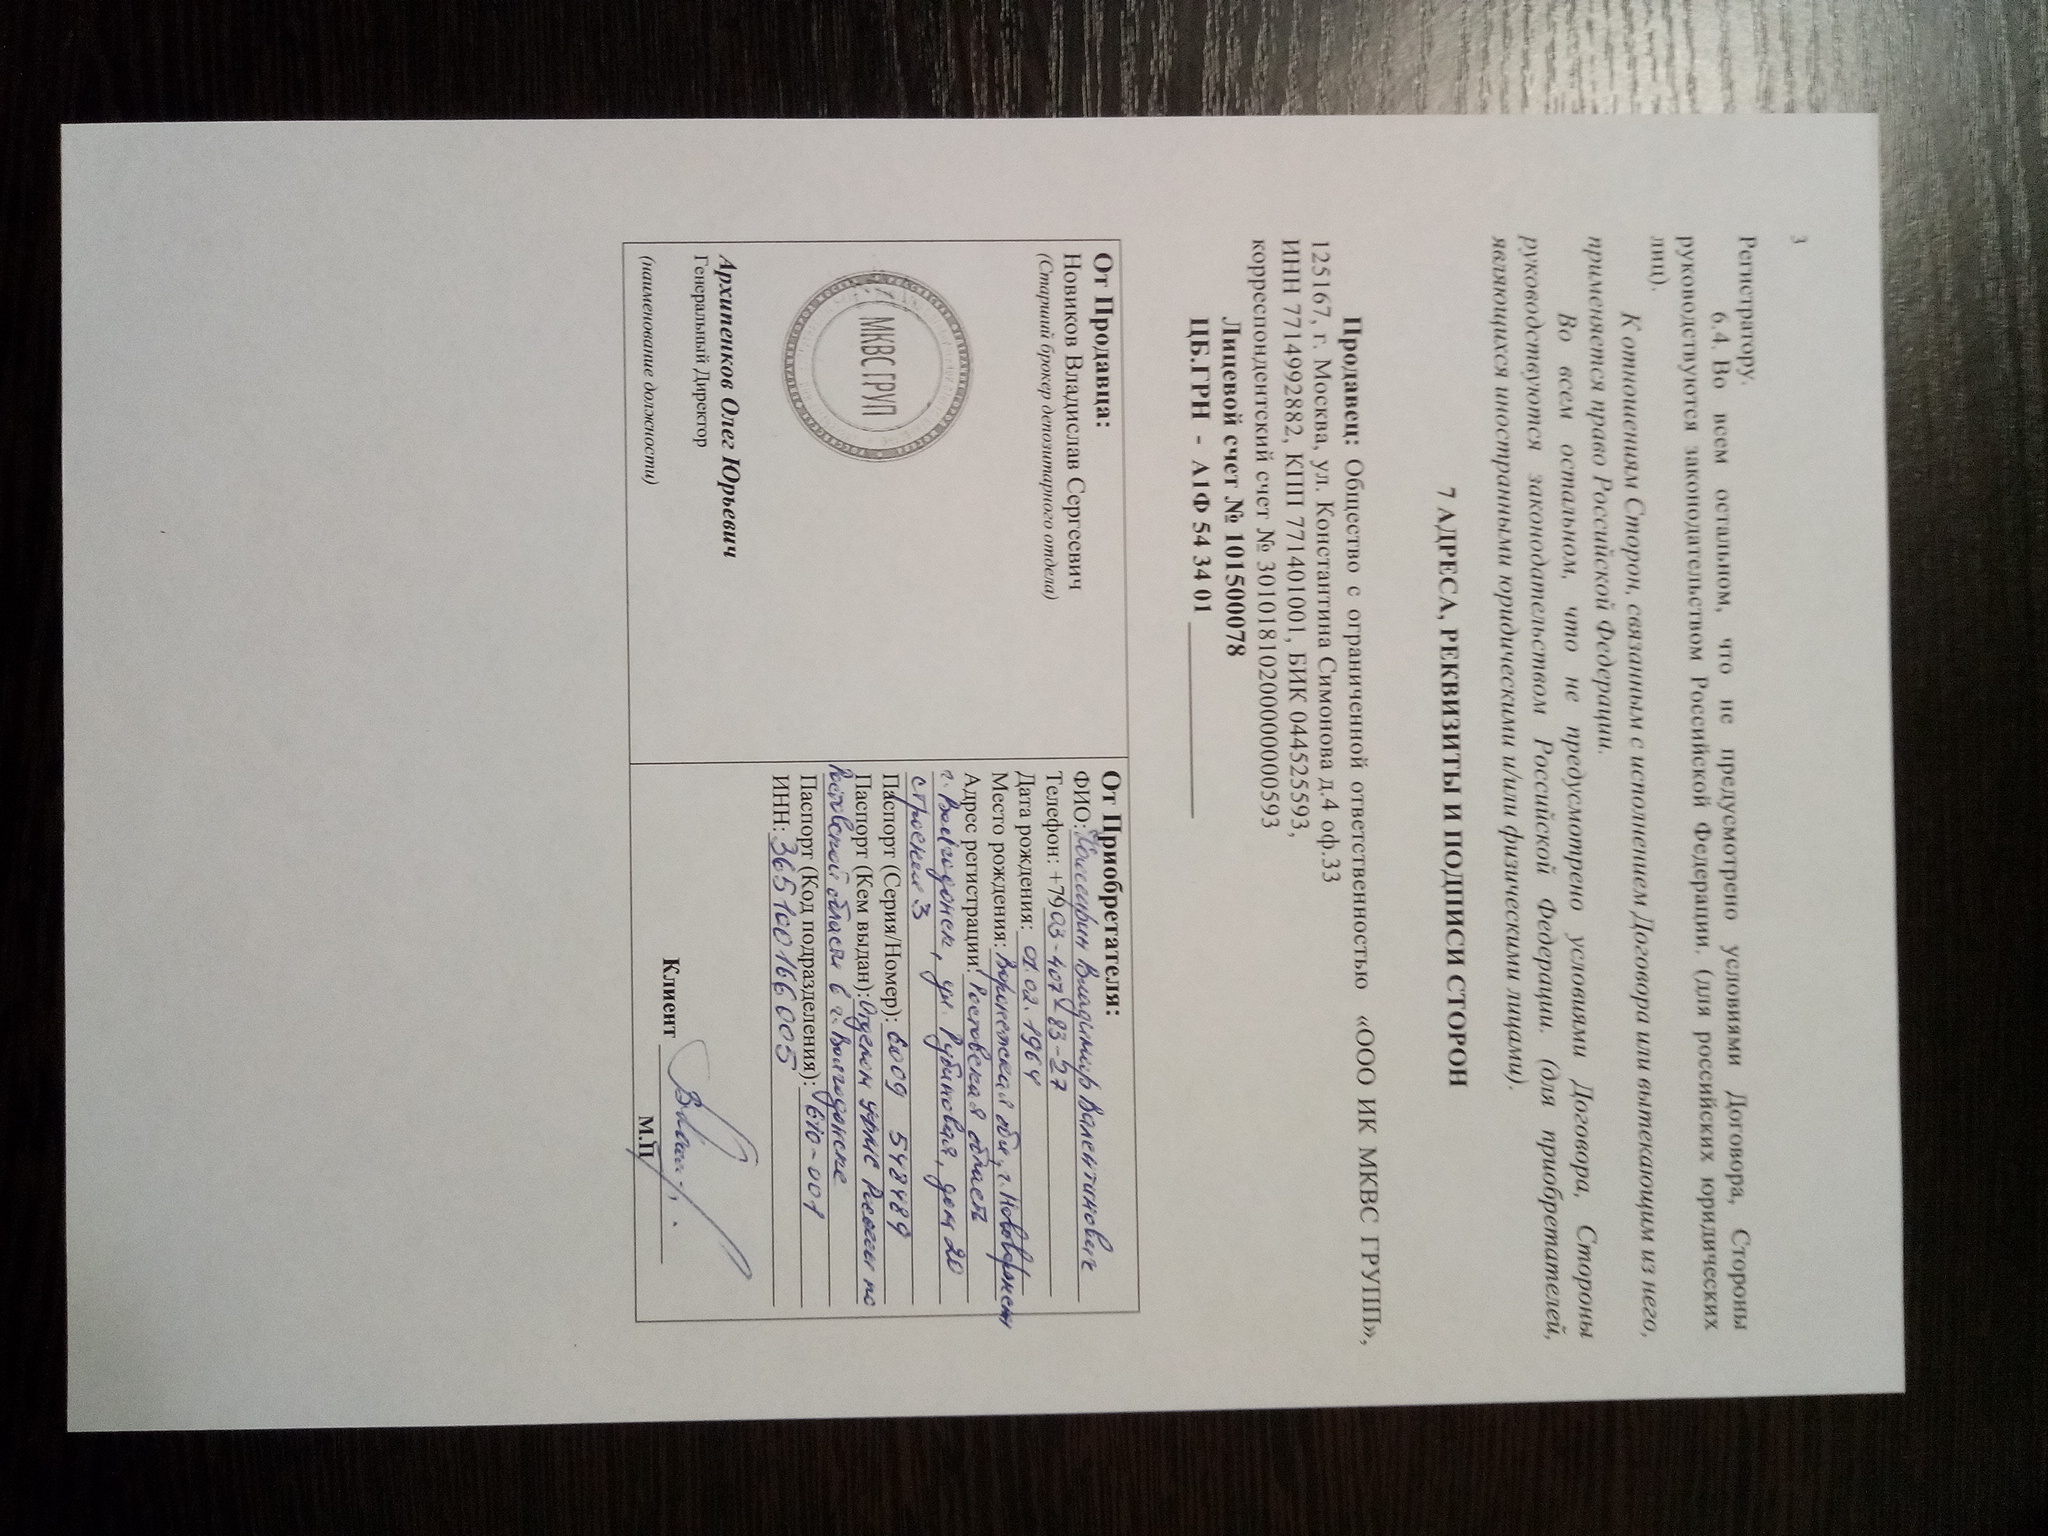 3
Регистратору.
6.4. Во всем остальном, что не предусмотрено условиями Договора, Стороны
руководствуются законодательством Российской Федерации. (для российских юридических
лиц).
К отношениям Сторон, связанным с исполнением Договора или вытекающим из него,
применяется право Российской Федерации.
Во всем остальном, что не предусмотрено условиями Договора, Стороны
руководствуются законодательством Российской Федерации. (для приобретателей,
являющихся иностранными юридическими и/или физическими лицами).
7 АДРЕСА, РЕКВИЗИТЫ И ПОДПИСИ СТОРОН
Продавец: Общество с ограниченной ответственностью «ООО ИК МКВС ГРУПП»,
125167, г. Москва, ул. Константина Симонова д.4 оф.33
ИНН 7714992882, КПП 771401001, БИК 044525593,
корреспондентский счет № 30101810200000000593
Лицевой счет № 101500078
ЦБ.ГРН - А1Ф 54 34 01
От Продавца:
Новиков Владислав Сергеевич
(Старший брокер депозитарного отдела)
МКВС ГРУП
Архипенков Олег Юрьевич
Генеральный Директор
(наименование должности)
От Приобретателя:
ФИО: Владимир Валентинович
Телефон: +7903-407-83-27
Дата рождения: 01.02.1964
Место рождения: Воронежская обл., г. Нововоронеж
Адрес регистрации: Ростовская область
г. Волгодонск, ул. Рубиновая, дом 20
строение 3
Паспорт (Серия/Номер): 6009 548489
Паспорт (Кем выдан): Отделом УФМС России по
Ростовской области в г. Волгодонске
Паспорт (Код подразделения): 610-001
ИНН: 365100166005
Клиент
М.П